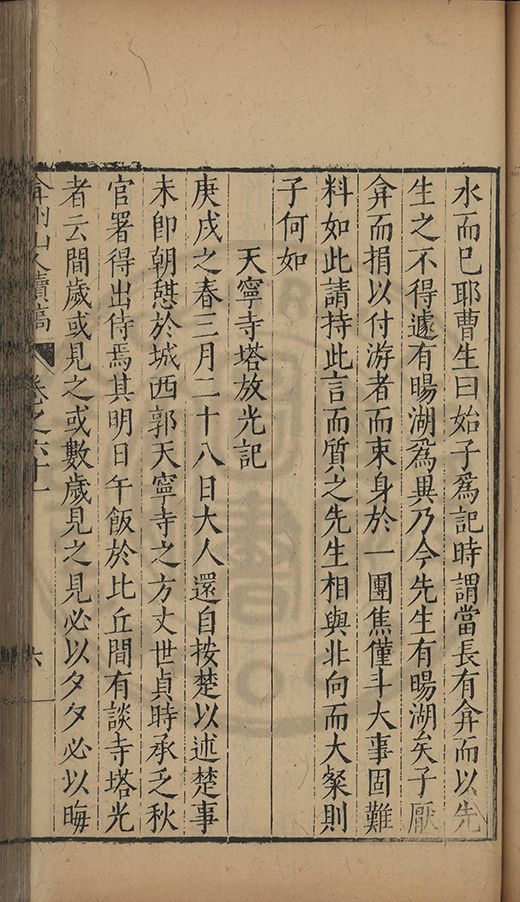 水而已耶曹生曰始子爲記時謂當長有弇而以先
生之不得遽有暘湖爲異乃今先生有暘湖矣子厭
弇而捐以付游者而束身於一團焦僅斗大事固難
料如此請持此言而質之先生相與北向而大粲則
子何如
天寧寺塔放光記
庚戌之春三月二十八日大人還自按楚以述楚事
未卽朝憇於城西郭天寧寺之方丈世貞時承乏秋
官署得出侍焉其明日午飯於比丘間有談寺塔光
者云間歲或見之或數歲見之見必以夕夕必以晦
弇州山人續稿
卷之六十一
六